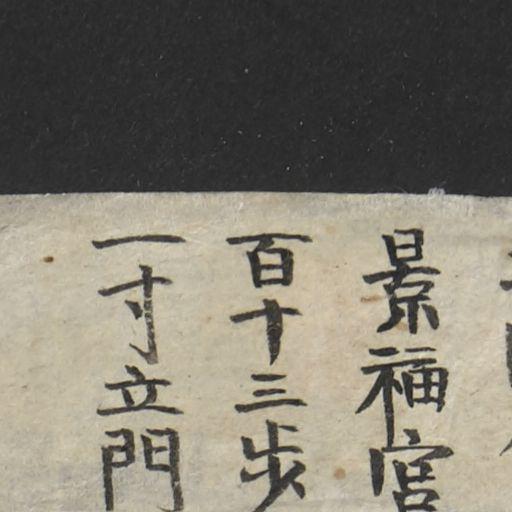 景福宮
百十三步
一寸立門